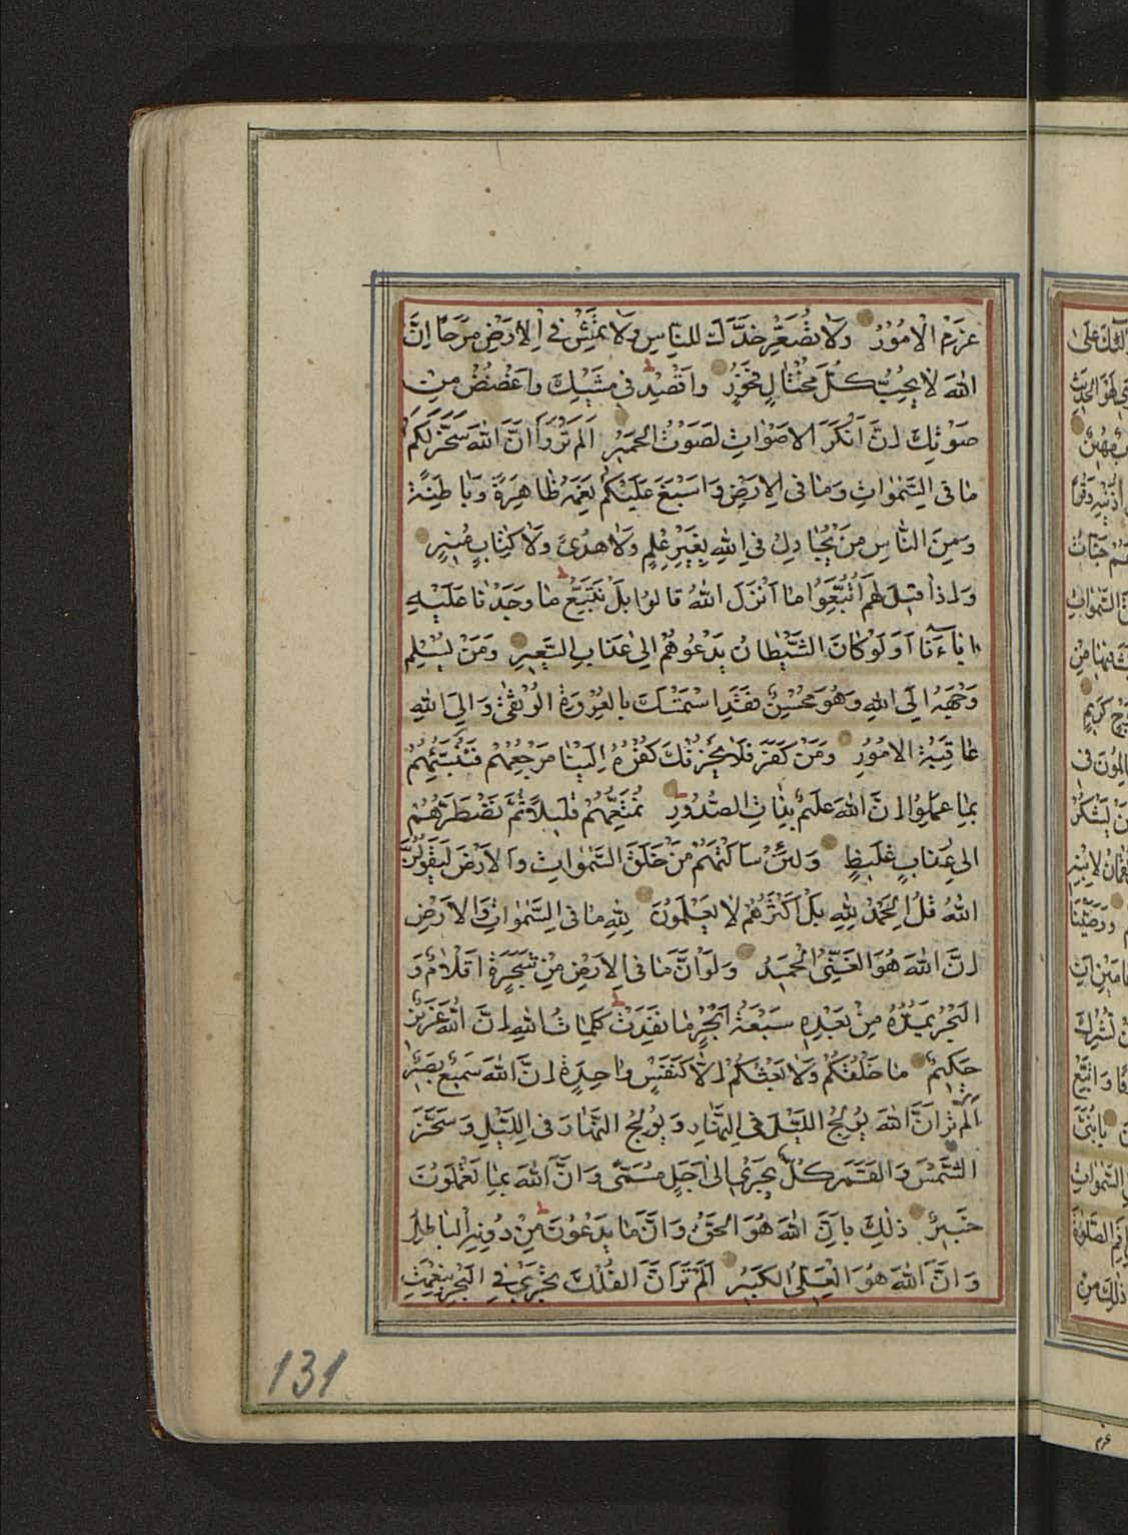 عَزْمِ الْاُمُوْرِ وَلَا تُصَعِّرْ خَدَّكَ لِلنّٰاسِ وَلَا تَمْشِ فِى الْاَرْضِ مَرَحًا اِنَّ
اللّٰهَ لَا يُحِبُّ كُلَّ مُخْتٰالٍ فَخُوْرٍ وَاقْصِدْ فِى مَشْيِكَ وَاغْضُضْ مِنْ
صَوْتِكَ اِنَّ اَنْكَرَ الْاَصْوٰاتِ لَصَوْتُ الْحَمِيْرِ اَلَمْ تَرَوْا اَنَّ اللّٰهَ سَخَّرَ لَكُمْ
مٰا فِى السَّمٰوٰاتِ وَمٰا فِى الْاَرْضِ وَاَسْبَغَ عَلَيْكُمْ نِعَمَهُ ظٰاهِرَةً وَبٰاطِنَةً
وَمِنَ النّٰاسِ مَنْ يُجٰادِلُ فِى اللّٰهِ بِغَيْرِ عِلْمٍ وَلَا هُدًى وَلَا كِتٰابٍ مُنِيْرٍ
وَاِذٰا قِيْلَ لَهُمُ اتَّبِعُوْا مٰا اَنْزَلَ اللّٰهُ قٰالُوْا بَلْ نَتَّبِعُ مٰا وَجَدْنٰا عَلَيْهِ
اٰبٰآءَنٰا اَوَلَوْ كٰانَ الشَّيْطٰانُ يَدْعُوْهُمْ اِلىٰ عَذٰابِ السَّعِيْرِ وَمَنْ يُسْلِمْ
وَجْهَهُ اِلَى اللّٰهِ وَهُوَ مُحْسِنٌ فَقَدِ اسْتَمْسَكَ بِالْعُرْوَةِ الْوُثْقىٰ وَاِلَى اللّٰهِ
عٰاقِبَةُ الْاُمُوْرِ وَمَنْ كَفَرَ فَلَا يَحْزُنْكَ كُفْرُهُ اِلَيْنٰا مَرْجِعُهُمْ فَنُنَبِّئُهُمْ
بِمٰا عَمِلُوْا اِنَّ اللّٰهَ عَلِيْمٌ بِذٰاتِ الصُّدُوْرِ نُمَتِّعُهُمْ قَلِيْلًا ثُمَّ نَضْطَرُّهُمْ
اِلىٰ عَذٰابٍ غَلِيْظٍ وَلَئِنْ سَاَلْتَهُمْ مَنْ خَلَقَ السَّمٰوٰاتِ وَالْاَرْضَ لَيَقُوْلُنَّ
اللّٰهُ قُلِ الْحَمْدُ لِلّٰهِ بَلْ اَكْثَرُهُمْ لَا يَعْلَمُوْنَ لِلّٰهِ مٰا فِى السَّمٰوٰاتِ وَالْاَرْضِ
اِنَّ اللّٰهَ هُوَ الْغَنِىُّ الْحَمِيْدُ وَلَوْ اَنَّ مٰا فِى الْاَرْضِ مِنْ شَجَرَةٍ اَقْلٰامٌ وَ
الْبَحْرُ يَمُدُّهُ مِنْ بَعْدِهِ سَبْعَةُ اَبْحُرٍ مٰا نَفِدَتْ كَلِمٰاتُ اللّٰهِ اِنَّ اللّٰهَ عَزِيْزٌ
حَكِيْمٌ مٰا خَلْقُكُمْ وَلَا بَعْثُكُمْ اِلَّا كَنَفْسٍ وٰاحِدَةٍ اِنَّ اللّٰهَ سَمِيْعٌ بَصِيْرٌ
اَلَمْ تَرَ اَنَّ اللّٰهَ يُوْلِجُ اللَّيْلَ فِى النَّهٰارِ وَيُوْلِجُ النَّهٰارَ فِى اللَّيْلِ وَسَخَّرَ
الشَّمْسَ وَالْقَمَرَ كُلٌّ يَجْرِى اِلىٰ اَجَلٍ مُسَمًّى وَاَنَّ اللّٰهَ بِمٰا تَعْمَلُوْنَ
خَبِيْرٌ ذٰلِكَ بِاَنَّ اللّٰهَ هُوَ الْحَقُّ وَاَنَّ مٰا يَدْعُوْنَ مِنْ دُوْنِهِ الْبٰاطِلُ
وَاَنَّ اللّٰهَ هُوَ الْعَلِىُّ الْكَبِيْرُ اَلَمْ تَرَ اَنَّ الْفُلْكَ تَجْرِى فِى الْبَحْرِ بِنِعْمَتِ
131